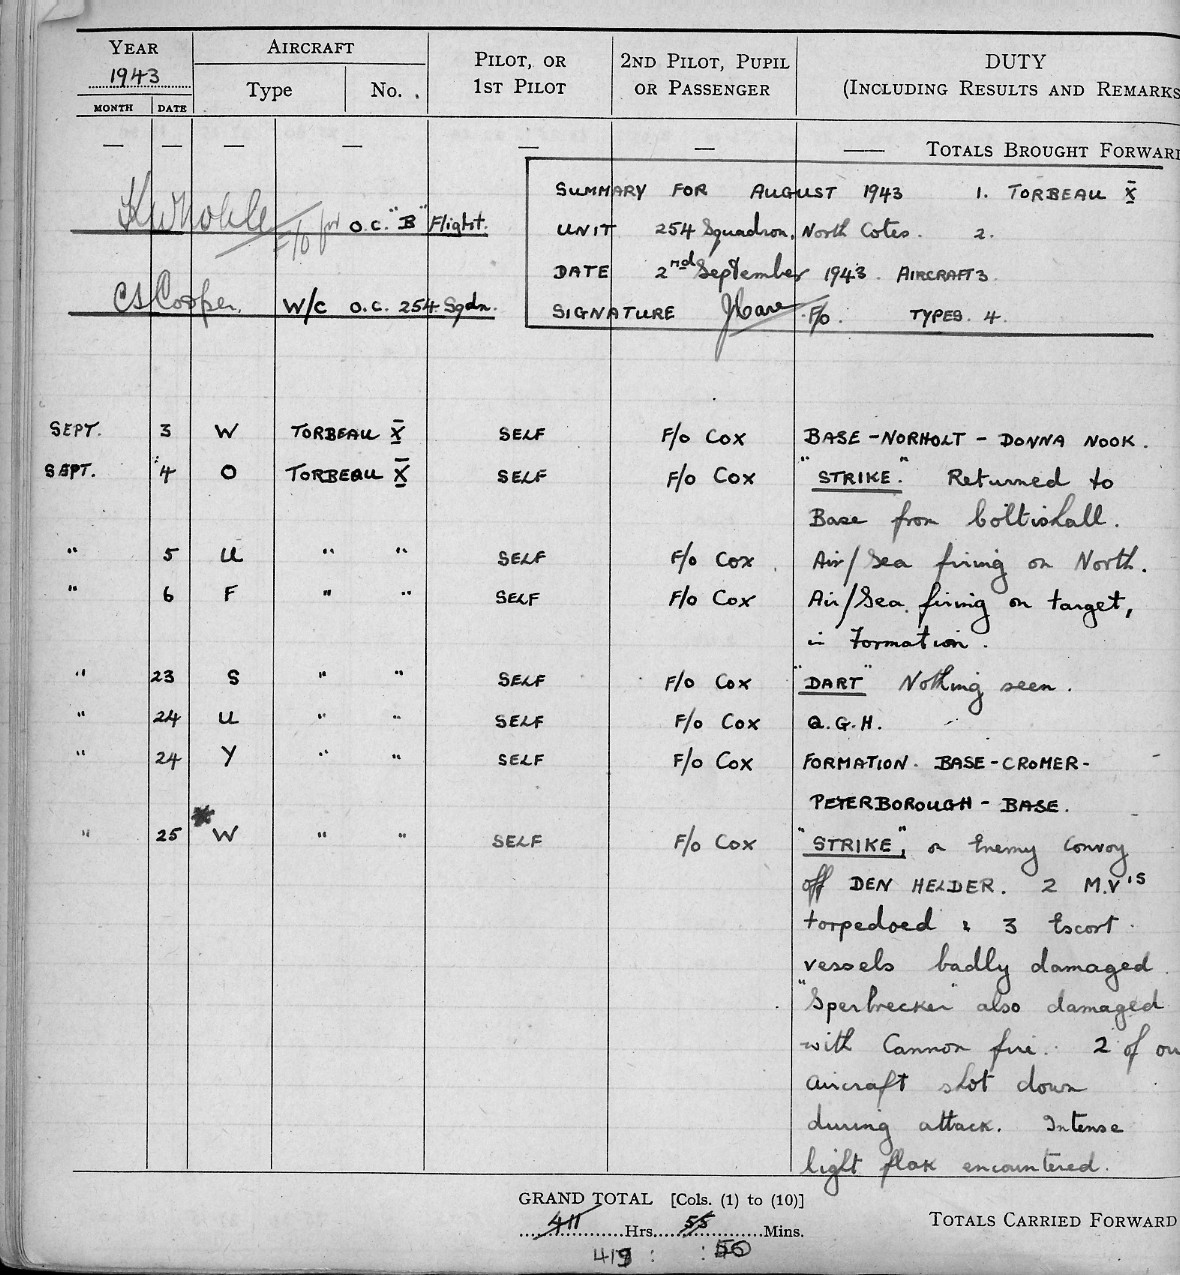 YEAR AIRCRAFT PILOT, OR 2ND PILOT, PUPIL DUTY
1943 Type No. 1ST PILOT OR PASSENGER (INCLUDING RESULTS AND REMARKS
MONTH DATE
— — — — — — —— TOTALS BROUGHT FORWARD
SUMMARY FOR AUGUST 1943 1. TORBEAU X
F/O for O.C. "B" Flight.
UNIT 254 Squadron, North Cotes. 2.
DATE 2nd September 1943. AIRCRAFT 3.
CS Cooper. W/C O.C. 254 Sqdn.
SIGNATURE F/O. TYPES. 4.
SEPT. 3 W TORBEAU X SELF F/O COX BASE - NORHOLT - DONNA NOOK.
SEPT. 4 O TORBEAU X SELF F/O COX "STRIKE." Returned to
Base from Coltishall.
" 5 U " " SELF F/O COX. Air/Sea firing on North.
" 6 F " " SELF F/O COX Air/Sea firing on target,
in Formation.
" 23 S " " SELF F/O COX "DART" Nothing seen.
" 24 U " " SELF F/O COX Q.G.H.
" 24 Y " " SELF F/O COX FORMATION. BASE-CROMER-
PETERBOROUGH - BASE.
" 25 *W " " SELF F/O COX "STRIKE", on Enemy Convoy
off DEN HELDER. 2 M.V'S
torpedoed & 3 Escort
vessels badly damaged.
"Sperbrecker" also damaged
with Cannon fire. 2 of our
aircraft shot down
during attack. Intense
light flak encountered.
GRAND TOTAL [Cols. (1) to (10)]
411 Hrs. 55 Mins. TOTALS CARRIED FORWARD
419 : : 50